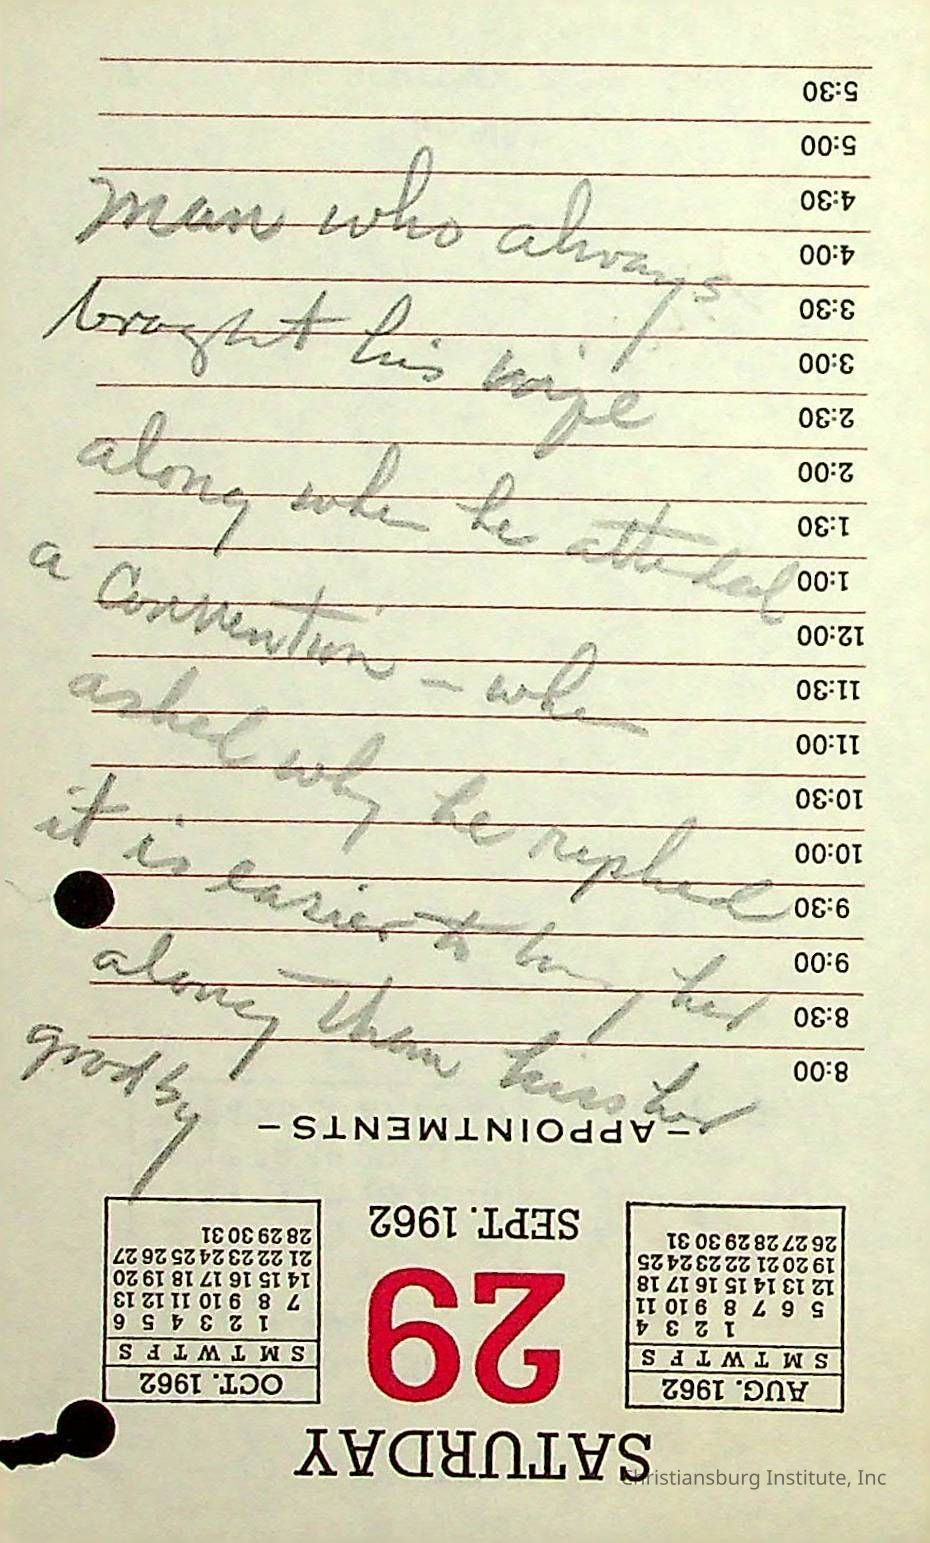 man who always
brought his wife
along when he attended
a Convention - when
asked why he replied
it is easier to bring her
along than kiss her
goodby
5:30
5:00
4:30
4:00
3:30
3:00
2:30
2:00
1:30
1:00
12:00
11:30
11:00
10:30
10:00
9:30
9:00
8:30
8:00
-APPOINTMENTS-
SATURDAY
29
SEPT. 1962
AUG. 1962
S M T W T F S
1 2 3 4
5 6 7 8 9 10 11
12 13 14 15 16 17 18
19 20 21 22 23 24 25
26 27 28 29 30 31
OCT. 1962
S M T W T F S
1 2 3 4 5 6
7 8 9 10 11 12 13
14 15 16 17 18 19 20
21 22 23 24 25 26 27
28 29 30 31
Christiansburg Institute, Inc